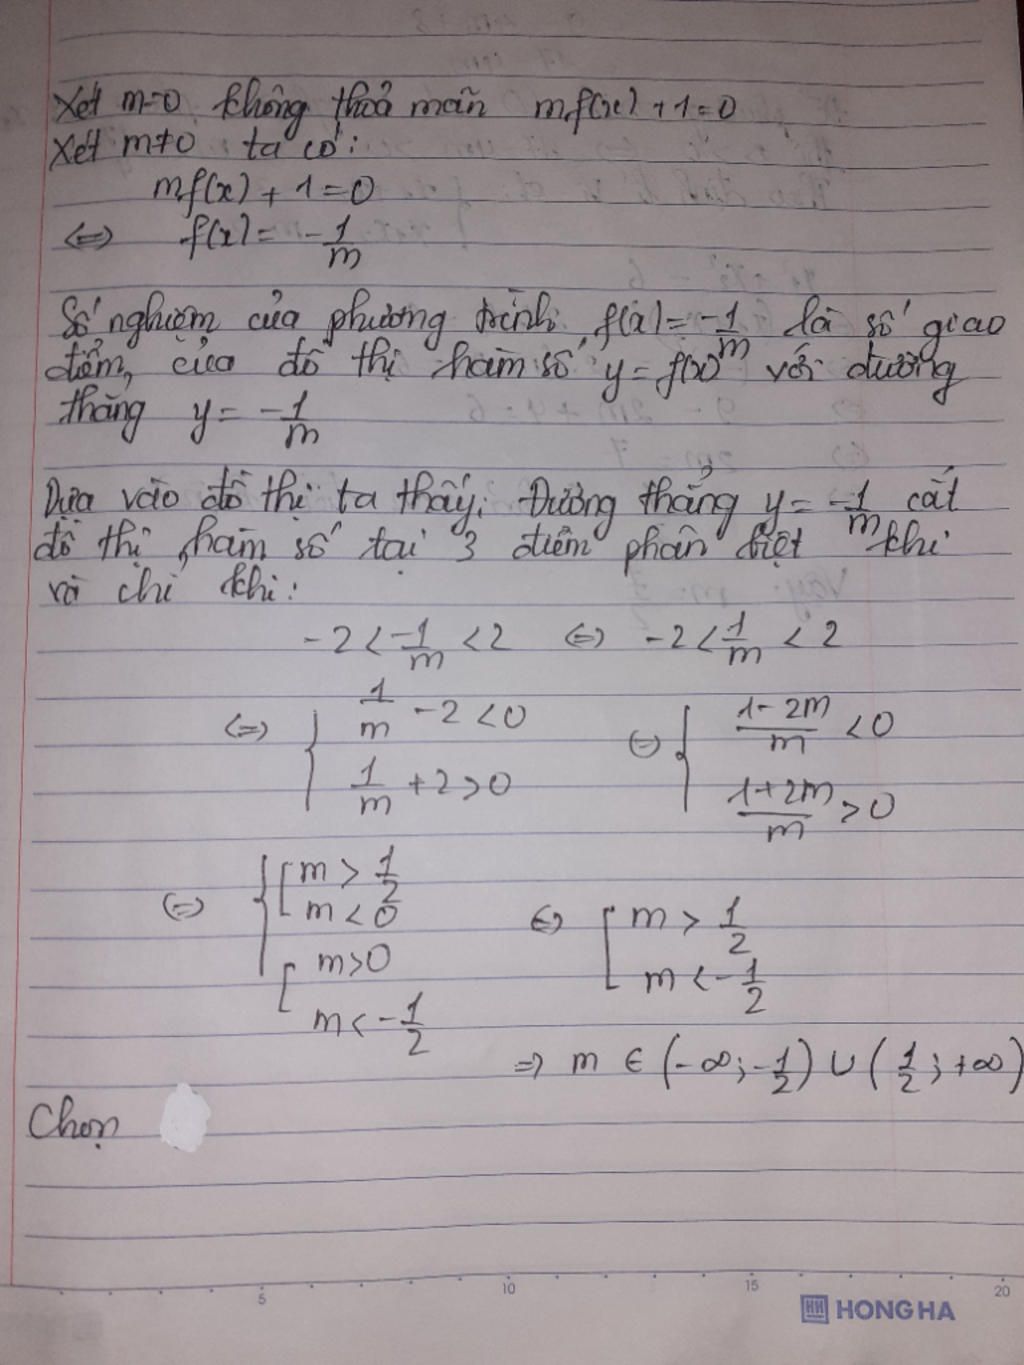 Xét m=0 không thoả mãn mf(x)+1=0
Xét m≠0 ta có:
mf(x)+1=0
⇔ f(x)= -1/m
Số nghiệm của phương trình f(x)=-1/m là số giao
điểm, của đồ thị hàm số y=f(x) với đường
thẳng y= -1/m
Dựa vào đồ thị ta thấy: Đường thẳng y=-1/m cắt
đồ thị hàm số tại 3 điểm phân biệt khi
và chỉ khi:
-2<-1/m<2 ⇔ -2<1/m<2
⇔ { 1/m -2<0 ; 1/m +2>0 ⇔ { (1-2m)/m <0 ; (1+2m)/m >0
⇔ { [ m>1/2 ; m<0 ; [ m>0 ; m<-1/2 ⇔ [ m>1/2 ; m<-1/2
⇒ m ∈ (-∞;-1/2) ∪ (1/2;+∞)
Chọn
5 10 15 20
HH HONG HA